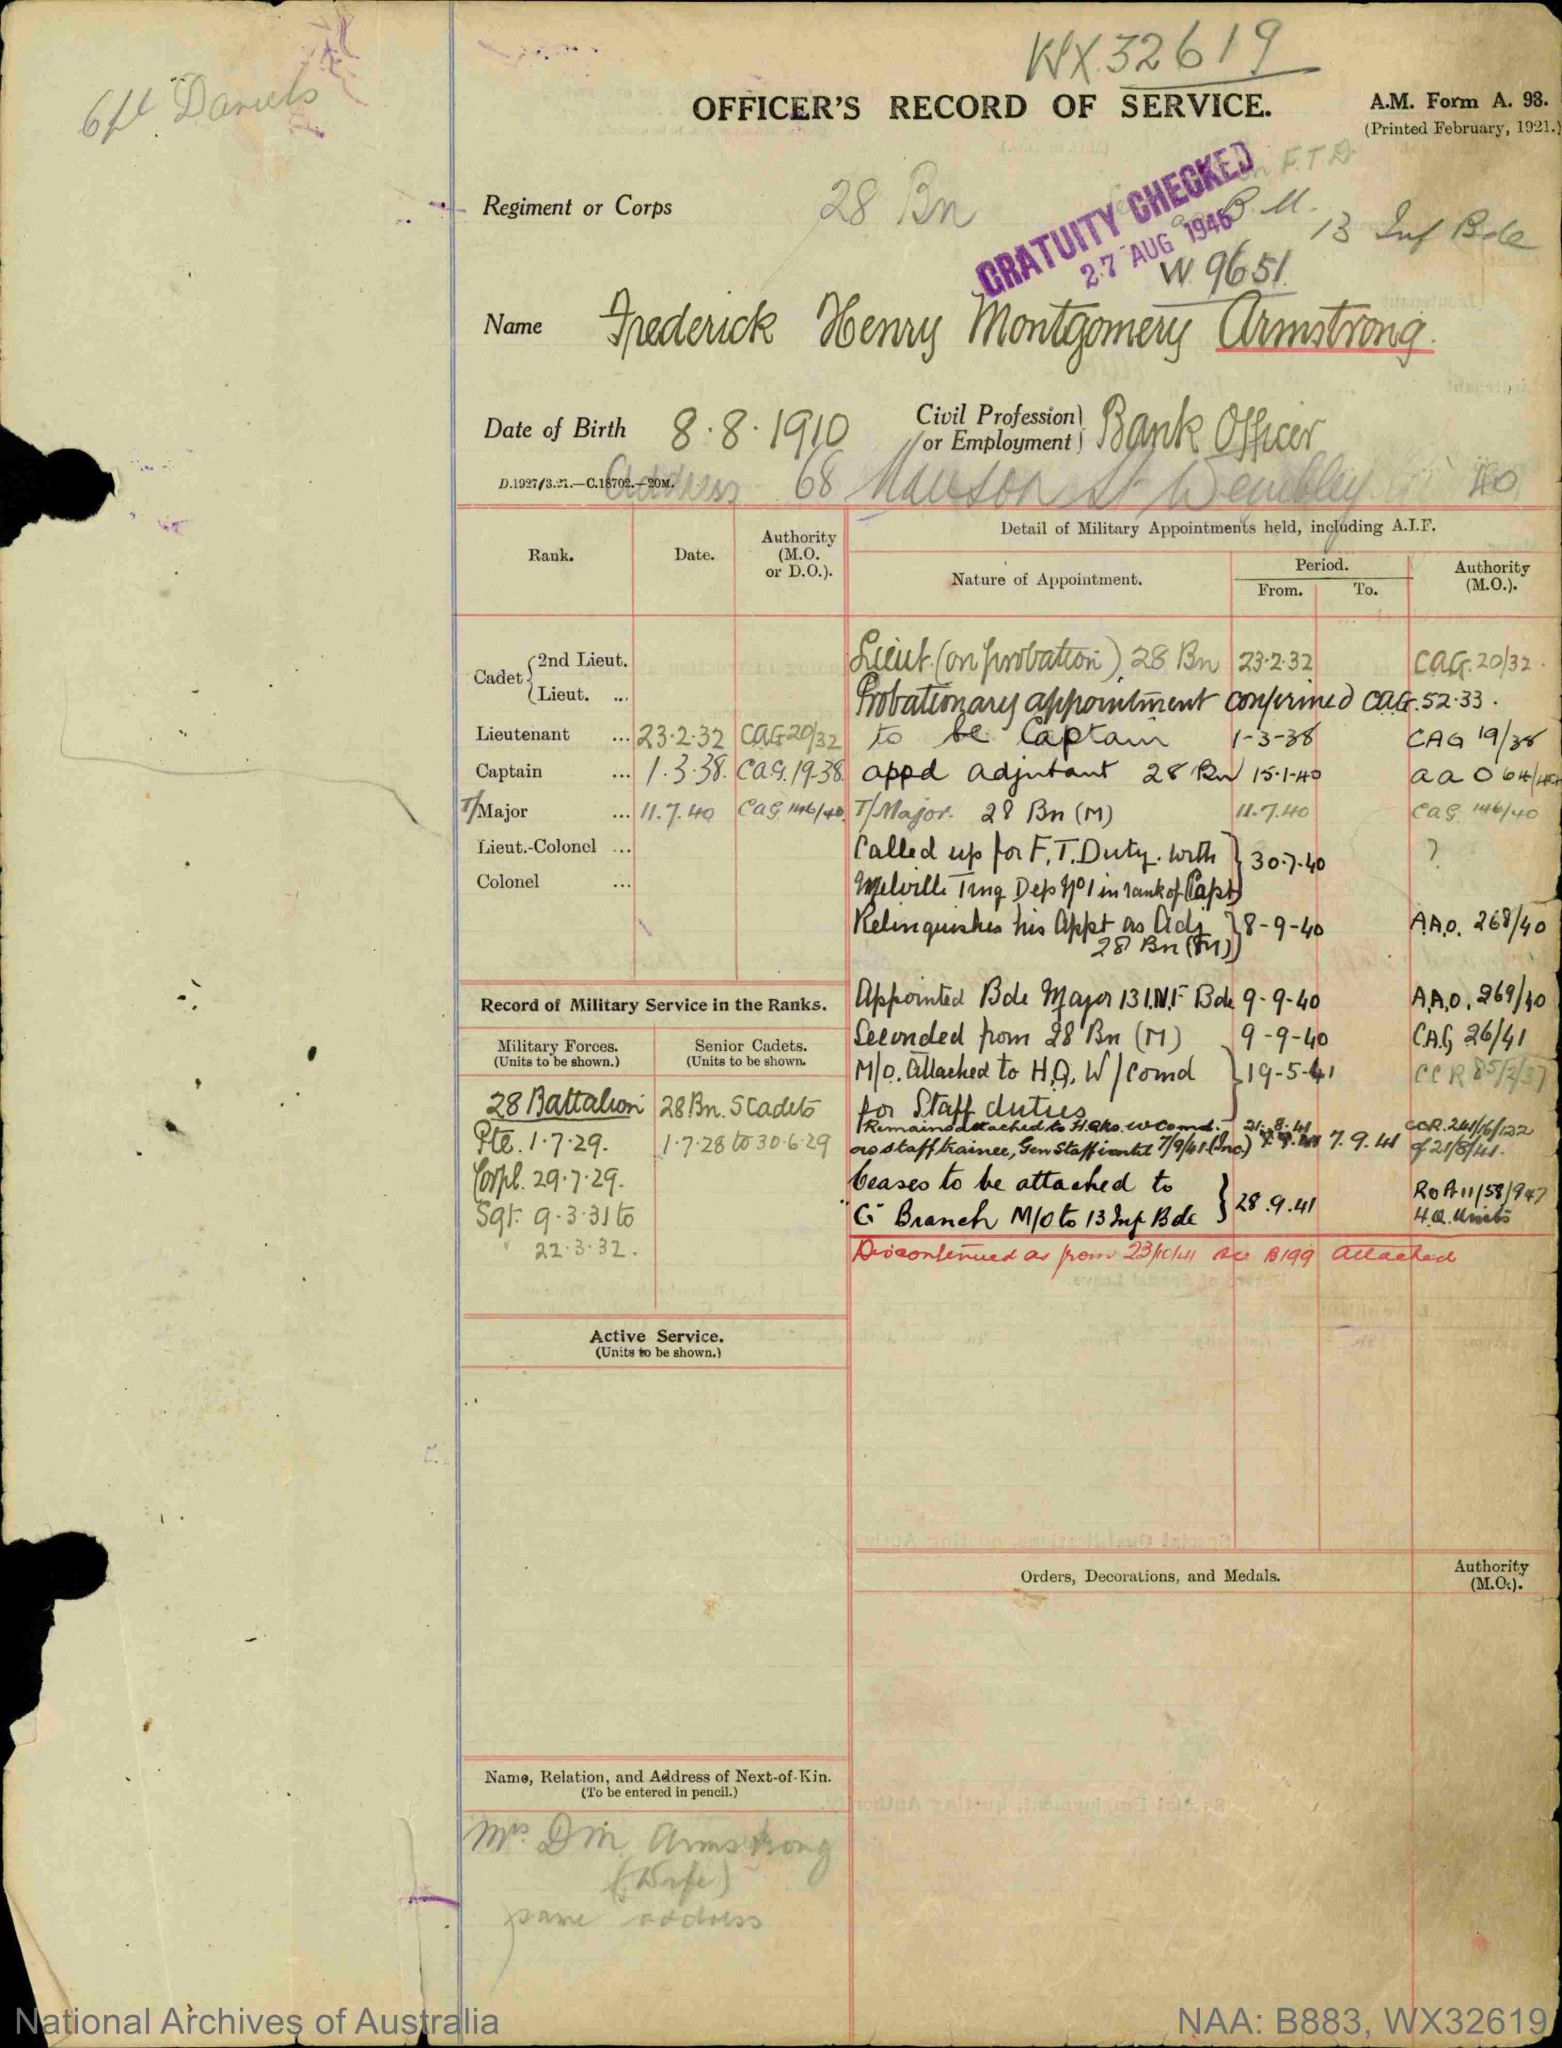 WX32619
6ft Daniels
OFFICER'S RECORD OF SERVICE.
A.M. Form A. 93.
(Printed February, 1921.)
F.T.D
Regiment or Corps 28 Bn
B.M. 13 Inf Bde
GRATUITY CHECKED
27 AUG 1946
W. 9651
Name Frederick Henry Montgomery Armstrong.
Date of Birth 8.8.1910
Civil Profession or Employment Bank Officer
D.1927/3.21.—C.18702.—20M.
Address 68 St Wembley
Rank. Date. Authority (M.O. or D.O.).
Detail of Military Appointments held, including A.I.F.
Nature of Appointment. Period. From. To. Authority (M.O.).
Cadet 2nd Lieut.
Lieut. ...
Lieutenant ... 23.2.32 CAG 20/32
Captain ... 1.3.38. CAG. 19.38.
T/Major ... 11.7.40 CAG 146/40
Lieut.-Colonel ...
Colonel ...
Lieut. (on probation) 28 Bn 23.2.32 CAG. 20/32.
Probationary appointment confirmed CAG. 52.33.
to be Captain 1-3-38 CAG 19/38
appd adjutant 28 Bn 15.1.40 AAO 64/40
T/Major. 28 Bn (M) 11.7.40 CAG 146/40
Called up for F.T. Duty. with 30.7.40 ?
Melville Trng Dep No 1 in rank of Capt
Relinquishes his Appt as Adj 8-9-40 A.A.O. 268/40
28 Bn (M)
Appointed Bde Major 13 INF Bde 9-9-40 A.A.O. 269/40
Seconded from 28 Bn (M) 9-9-40 CAG 26/41
M/O. Attached to H.Q. W/Comd 19-5-41 CCR 85/2/37
for Staff duties
Remains attached to H.Qrs. W Comd. 21.8.41 CCR. 241/16/122
as staff trainee, Gen Staff until 7/9/41 (Inc) 7.9.41 of 21/8/41.
Ceases to be attached to 28.9.41 RoA 11/58/947
'G' Branch M/O to 13 Inf Bde H.Q. Units
Discontinued as from 23/10/41 see B199 attached
Record of Military Service in the Ranks.
Military Forces. (Units to be shown.)
Senior Cadets. (Units to be shown.
28 Battalion
Pte. 1.7.29.
Corpl. 29.7.29.
Sgt. 9.3.31 to
22.3.32.
28 Bn. S Cadets
1.7.28 to 30.6.29
Active Service.
(Units to be shown.)
Orders, Decorations, and Medals. Authority (M.O.).
Name, Relation, and Address of Next-of-Kin.
(To be entered in pencil.)
Mrs D M Armstrong
(Wife)
same address
National Archives of Australia
NAA: B883, WX32619